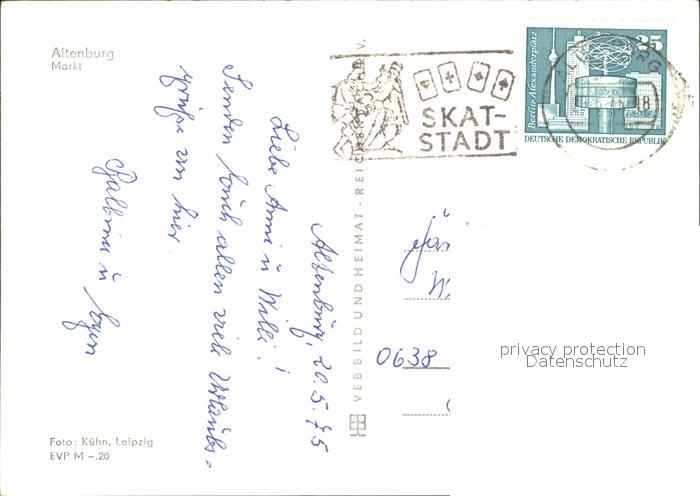 Altenburg
Markt
SKAT-
STADT
Berlin-Alexanderplatz
25
DEUTSCHE DEMOKRATISCHE REPUBLIK
18
Altenburg, 20.5.75
Liebe Anni u Willi!
Senden Euch allen viele Urlaubs-
grüße von hier.
u
VEB BILD UND HEIMAT - REICHENBACH I. V.
0638
privacy protection
Datenschutz
Foto: Kühn, Leipzig
EVP M -.20